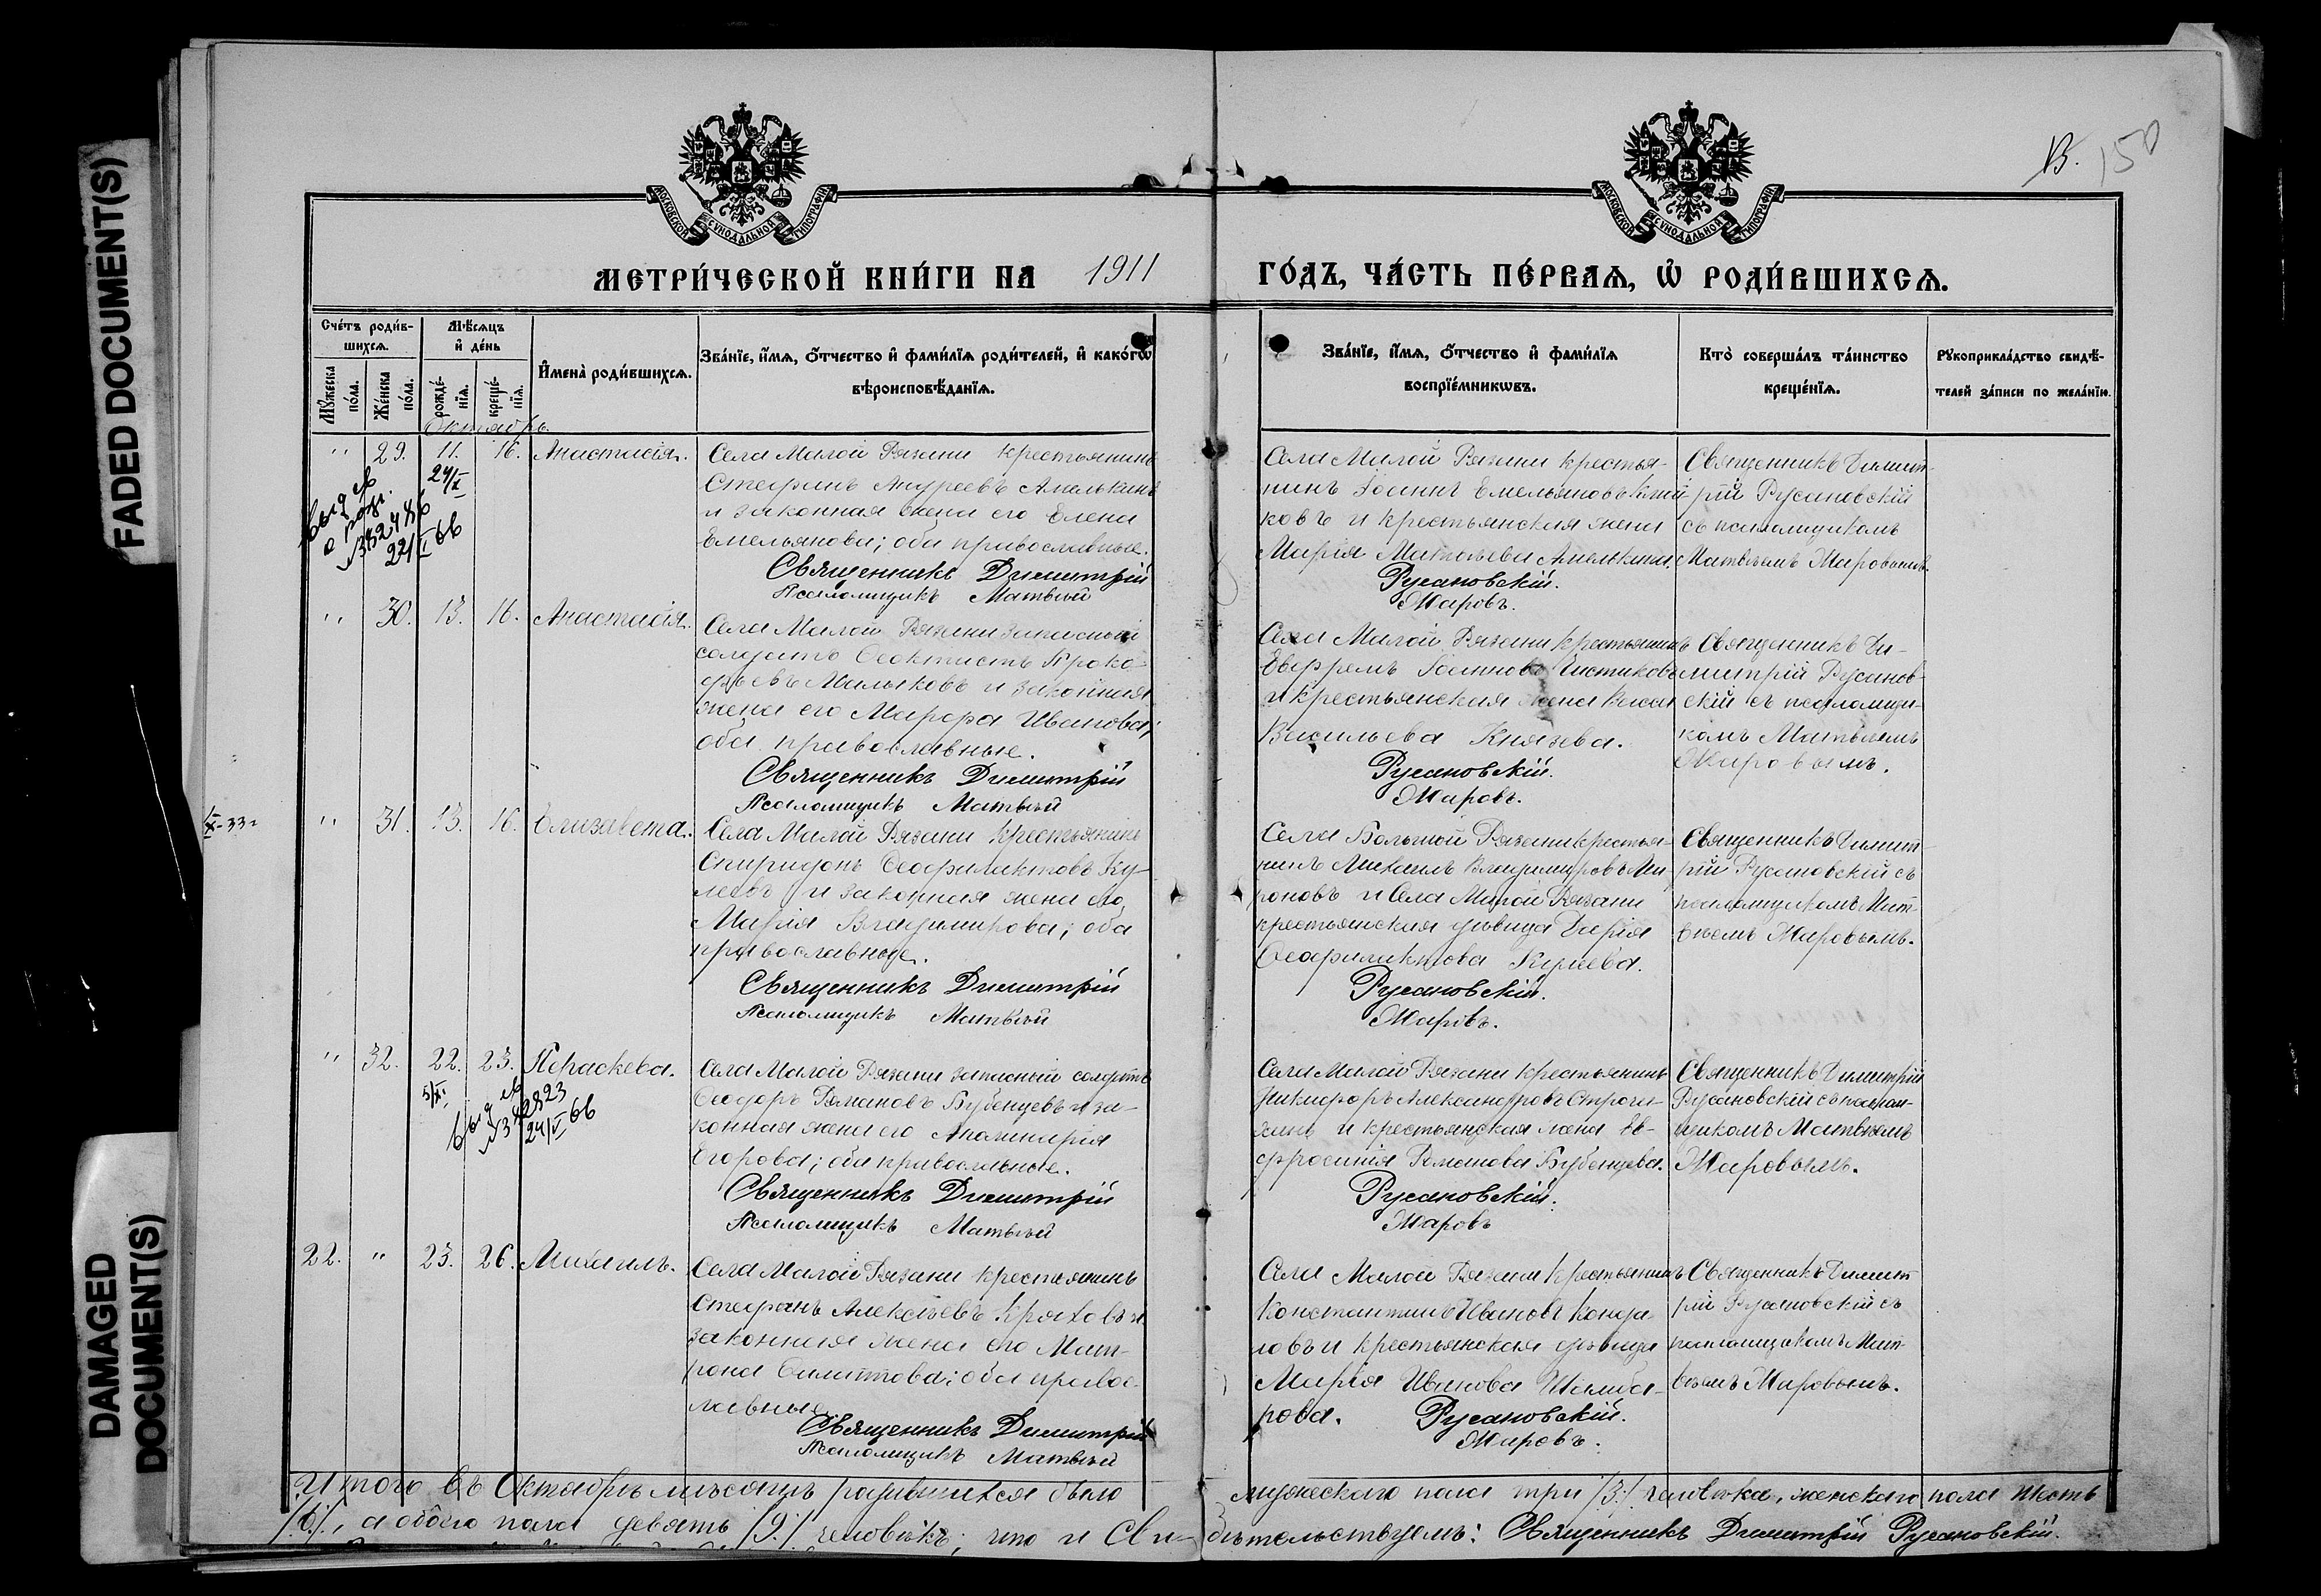 FADED DOCUMENT(S)
DAMAGED DOCUMENT(S)
В. 150
МОСКОВСКОЙ СУНОДАЛЬНОЙ ТИПОГРАФІИ
МОСКОВСКОЙ СУНОДАЛЬНОЙ ТИПОГРАФІИ
МЕТРИ́ЧЕСКОЙ КНИ́ГИ НА 1911 ГО́ДЪ, ЧА́СТЬ ПЕ́РВАѦ, Ѡ҆ РОДИ́ВШИХСѦ.
Сче́тъ роди́в-
шихсѧ.
Мꙋ́жеска по́ла.
Же́нска по́ла.
Мѣ́сѧцъ
и҆ де́нь
рожде́-
нїѧ.
креще́-
нїѧ.
И҆мена̀ роди́вшихсѧ.
Зва́нїе, и҆́мѧ, ѻ҆́тчество и҆ фами́лїѧ роди́телей, и҆ како́гѡ
вѣроисповѣ́данїѧ.
Зва́нїе, и҆́мѧ, ѻ҆́тчество и҆ фами́лїѧ
воспрїе́мникѡвъ.
Кто̀ соверша́лъ та́инство
креще́нїѧ.
Рꙋкоприкла́дство свидѣ́-
телей за́писи по жела́нїю.
Октябрь.
" 29. 11. 16. Анастасія.
24/X
выд св
о рож.
22/I 66
Села Малой Рязани крестьянинъ
Стефанъ Андреевъ Амелькинъ
и законная жена его Елена
Емельянова; оба православные.
Священникъ Димитрій
Псаломщикъ Матвѣй
Села Малой Рязани крестья-
нинъ Іоаннъ Емельяновъ
ковъ и крестьянская жена
Марія Матвѣева Амелькина
Русановскій.
Жаровъ.
Священникъ Димит-
рій Русановскій
съ псаломщикомъ
Матвѣемъ Жаровымъ.
" 30. 13. 16. Анастасія.
Села Малой Рязани запасный
солдатъ Ѳеоктистъ Проко-
фьевъ Малыковъ и законная
жена его Марфа Иванова;
оба православные.
Священникъ Димитрій
Псаломщикъ Матвѣй
Села Малой Рязани крестьянинъ
Евфремъ Іоанновъ Чистиковъ
и крестьянская жена
Васильева Князева.
Русановскій.
Жаровъ.
Священникъ Ди-
митрій Русанов-
скій съ псаломщи-
комъ Матвѣемъ
Жаровымъ.
" 31. 13. 16. Елизавета.
Села Малой Рязани крестьянинъ
Спиридонъ Ѳеофилактовъ Ку-
леевъ и законная жена его
Марія Владимирова; оба
православные.
Священникъ Димитрій
Псаломщикъ Матвѣй
Села Большой Рязани крестья-
нинъ Михаилъ Владимировъ Ми-
роновъ и Села Малой Рязани
крестьянская дѣвица Дарія
Ѳеофилактова Кулеева.
Русановскій.
Жаровъ.
Священникъ Димит-
рій Русановскій съ
псаломщикомъ Мат-
вѣемъ Жаровымъ.
" 32. 22. 23. Параскева.
5/XI
выд св
№ 342823
24/V 66
Села Малой Рязани запасный солдатъ
Ѳеодоръ Романовъ Бубенцевъ и за-
конная жена его Аполинарія
Егорова; оба православные.
Священникъ Димитрій
Псаломщикъ Матвѣй
Села Малой Рязани крестьянинъ
Никифоръ Александровъ Строга-
кинъ и крестьянская жена Ев-
фросинія Романова Бубенцева.
Русановскій.
Жаровъ
Священникъ Димитрій
Русановскій съ псалом-
щикомъ Матвѣемъ
Жаровымъ.
22. " 23. 26. Михаилъ.
Села Малой Рязани крестьянинъ
Стефанъ Алексѣевъ Кряховъ и
законная жена его Мат-
рона Филиппова; оба правос-
лавные.
Священникъ Димитрій
Псаломщикъ Матвѣй
Села Малой Рязани крестьянинъ
Константинъ Ивановъ Конда-
ловъ и крестьянская дѣвица
Марія Иванова Шамба-
рова. Русановскій.
Жаровъ.
Священникъ Димит-
рій Русановскій съ
псаломщикомъ Мат-
вѣемъ Жаровымъ.
Итого въ Октябрѣ мѣсяцѣ родившихся было мужескаго пола три /3/ человѣка, женскаго пола шесть
/6/, а обоего пола девять /9/ человѣкъ, что и сви-дѣтельствуемъ: Священникъ Димитрій Русановскій.